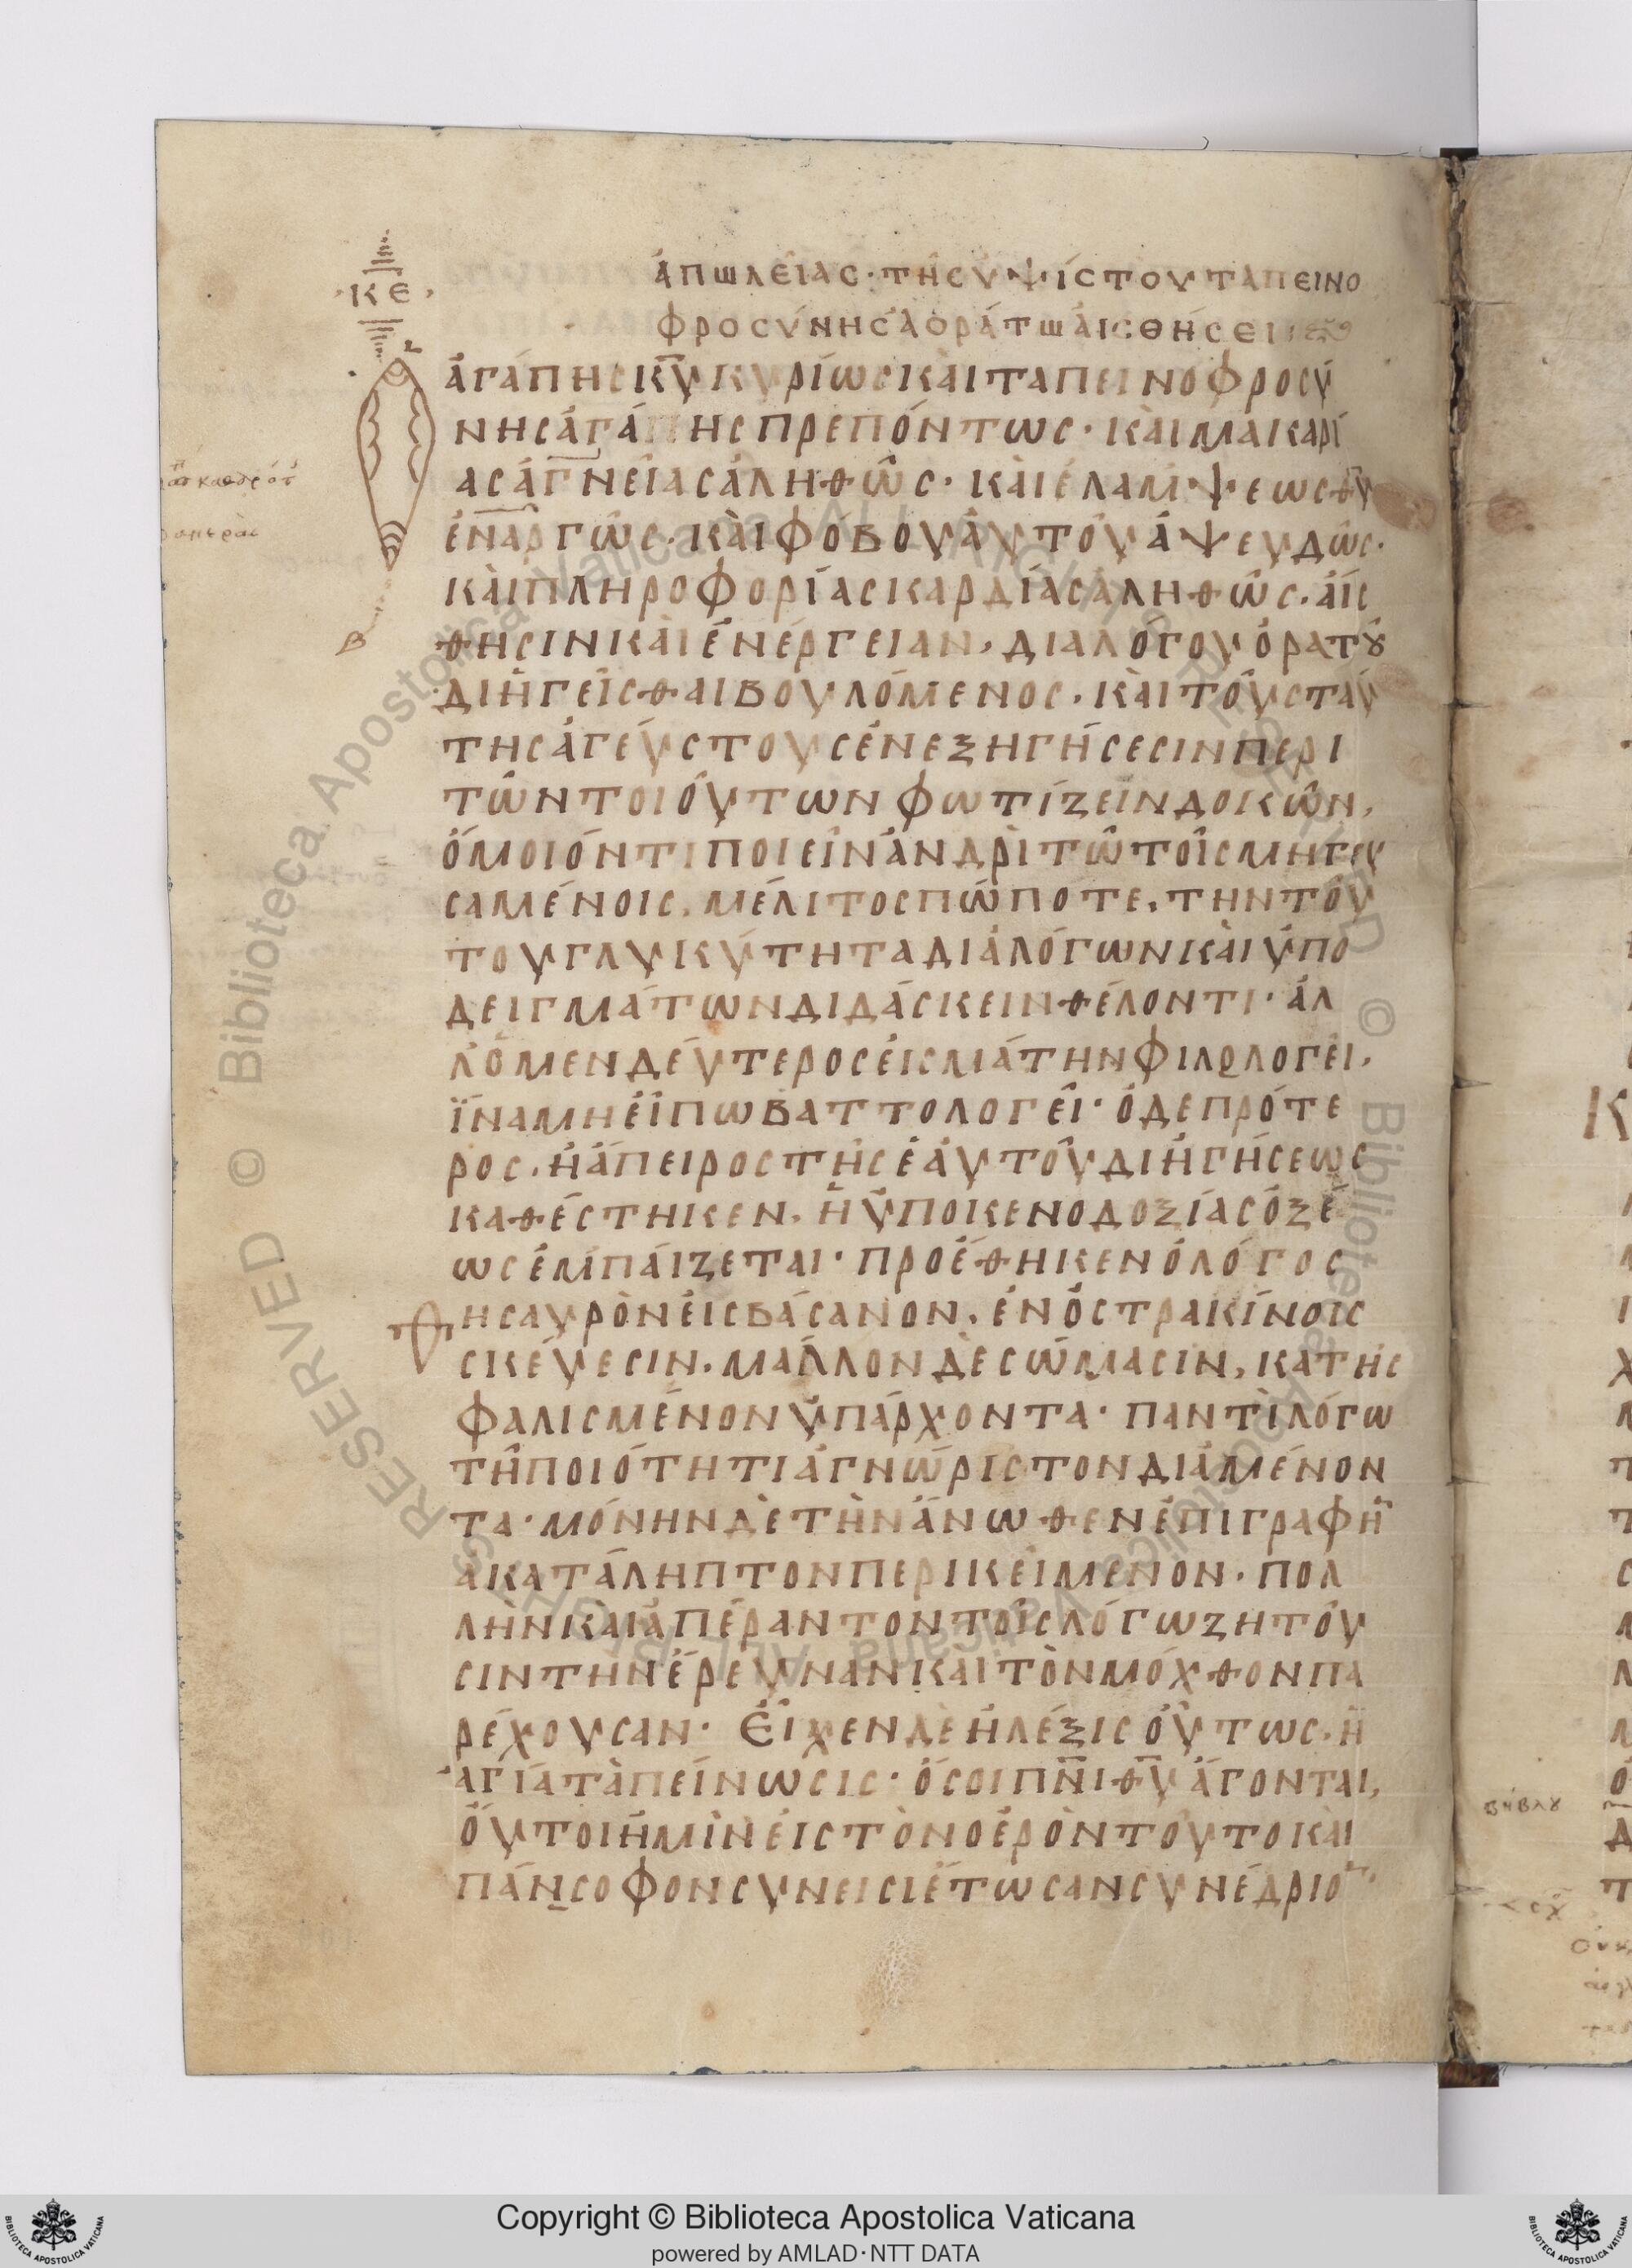 ἀπωλείας· τῆς ὑψίστου ταπεινο
φροσύνης ἀοράτω αἰσθήσει
·ΚΕ·
ἀγάπης κ̅υ̅ κυρίως καὶ ταπεινοφροσύ
νης ἀγάπης πρεπόντως· καὶ μακαρί
ας ἁγνείας ἀληθῶς· καὶ ἐλάμψεως θ̅υ̅
ἐναργῶς· καὶ φόβου ἀυτοῦ ἀψευδῶς·
καὶ πληροφορίας καρδίας ἀληθῶς. ἀίσ
θησιν καὶ ἐνέργειαν, δια λόγου ὁρατȣ̂
διηγεῖσθαι βουλόμενος. καὶ τοὺς ταύ
της ἀγεύστους ἐν ἐξηγήσεσιν περι
τῶν τοιούτων φωτίζειν δοκῶν,
ὅμοιόν τι ποιεῖν ἀνδρὶ τῶ τοῖς μὴ γευ
σαμένοις, μέλιτος πώποτε, την τού
του γλυκύτητα διὰ λόγων καὶ ὑπο
δειγμάτων διδάσκειν θέλοντι· ἀλ
λ' ὁ μεν δεύτερος εἰς μάτην φιλολογεῖ,
ἵνα μη εἴπω βαττολογεῖ· ὁ δε πρότε
ρος. ἢ ἄπειρος τῆς ἑαυτοῦ διηγήσεως
καθέστηκεν, ἢ ὑπο κενοδοξίας ὀξέ
ως ἐμπάιζεται· προέθηκεν ὁ λόγος
θησαυρὸν εἰς βάσανον, ἐν ὀστρακίνοις
σκέυεσιν. μᾶλλον δὲ σώμασιν, κατησ
φαλισμένον ὑπάρχοντα· παντὶ λόγω
τῆ ποιότητι ἀγνώριστον διαμένον
τα· μόνην δὲ τὴν ἄνωθεν ἐπιγραφη̅
ακατάληπτον περικείμενον. πολ
λὴν καὶ ἀπέραντον τοῖς λόγω ζητοῦ
σιν την ἔρευναν και τὸν μόχθον πα
ρέχουσαν· Εἶχεν δὲ ἡ λέξις οὕτως. ἡ
ἁγία ταπείνωσις· ὅσοι π̅ν̅ι̅ θ̅υ̅ ἄγονται,
οὗτοι ἡμῖν εἰς τὸ νοερὸν τοῦτο καὶ
πάνσοφον συνεισιέτωσαν συνέδριο